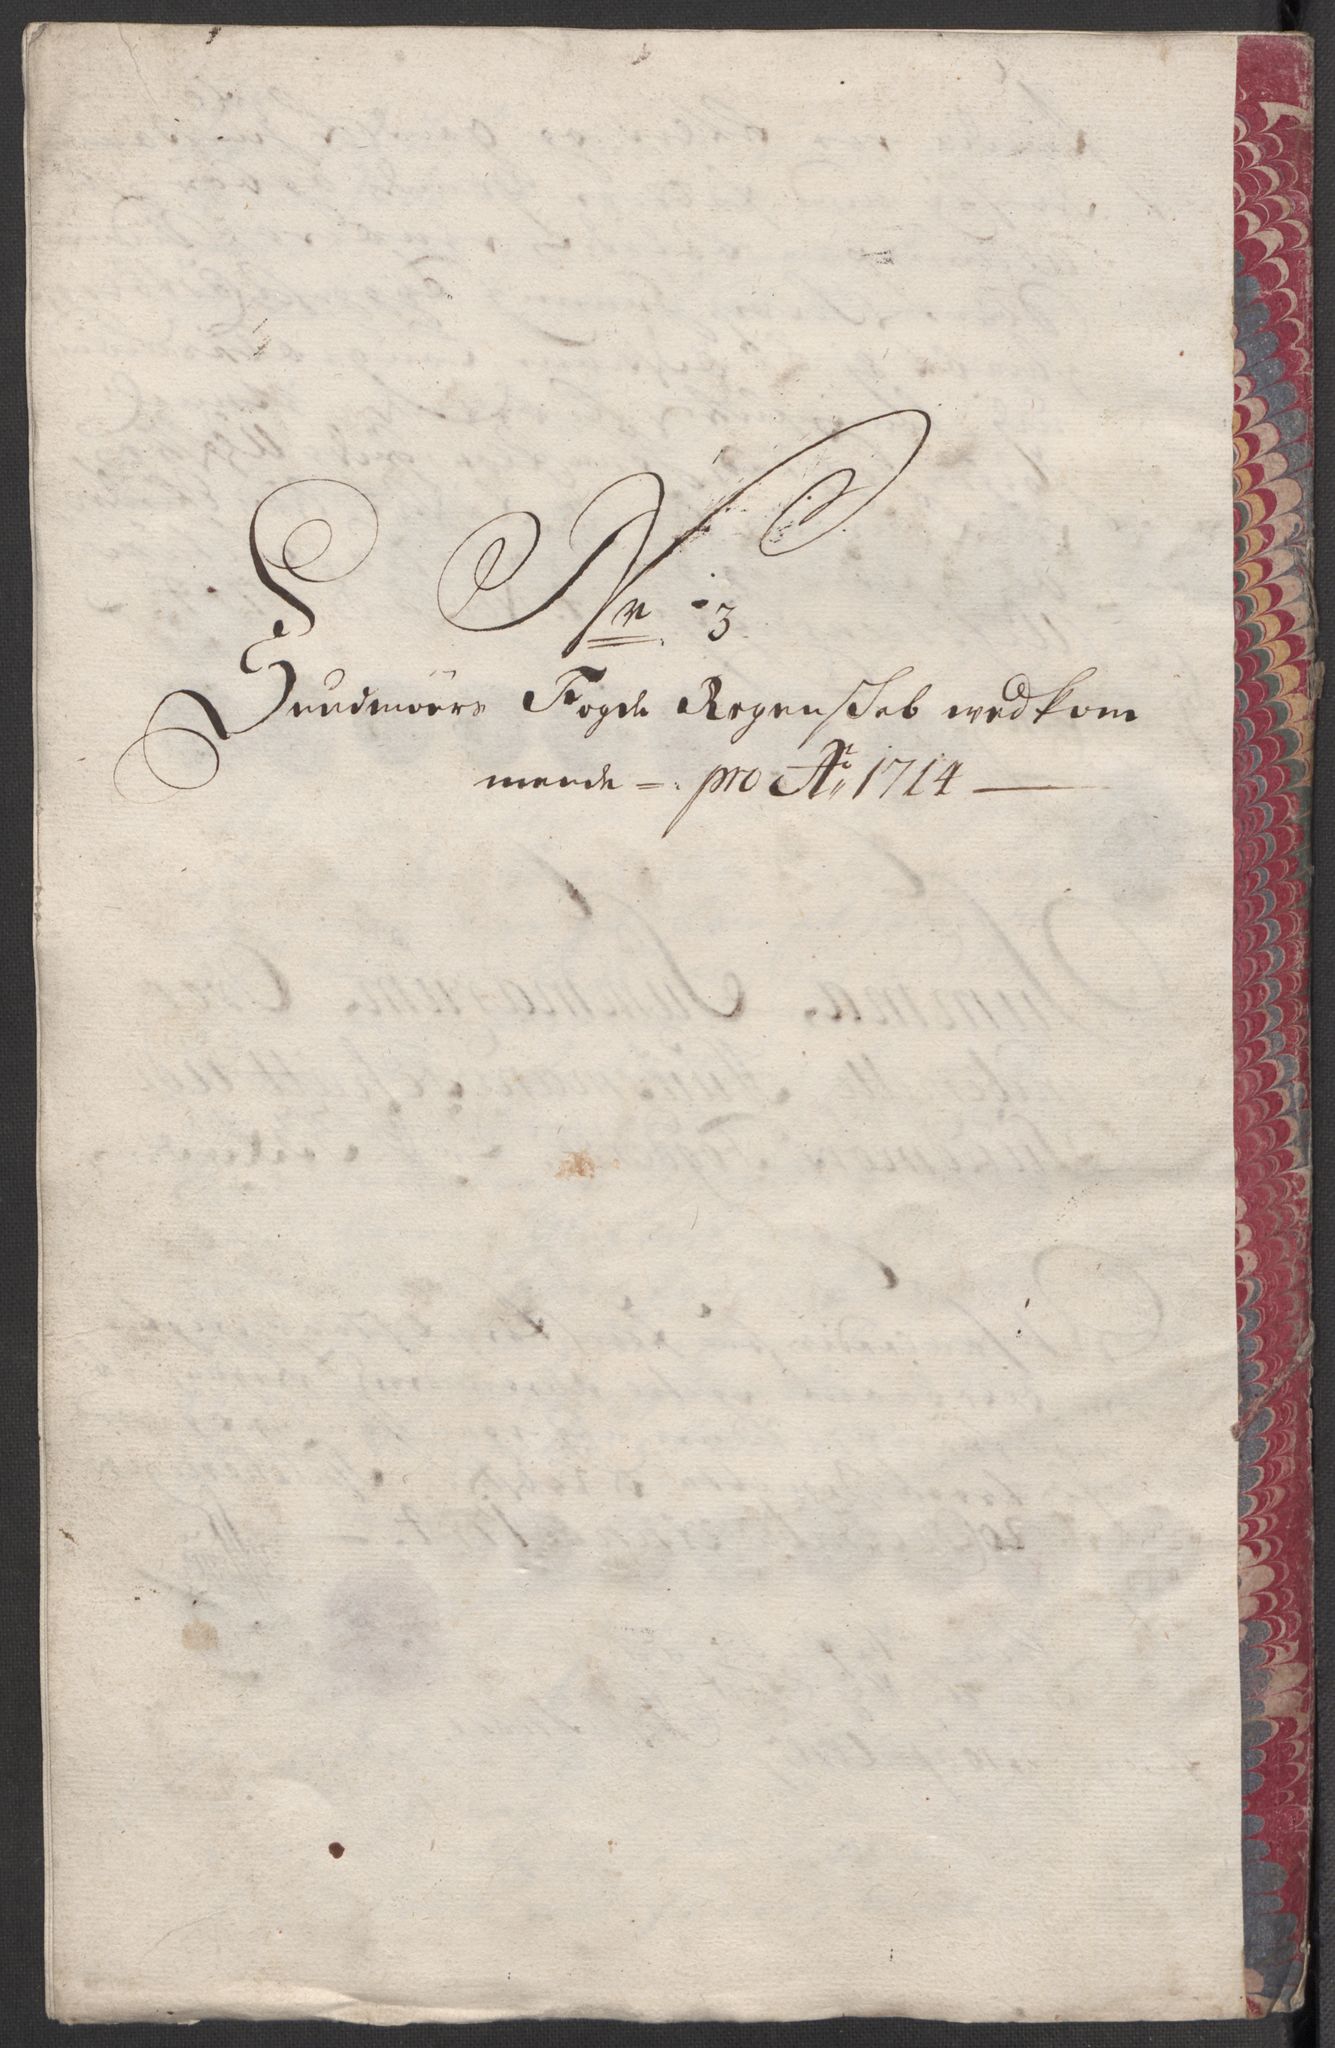 Nr 3
Sundmöers Fogde Regenskab wedkom
mende = pro Ao 1714